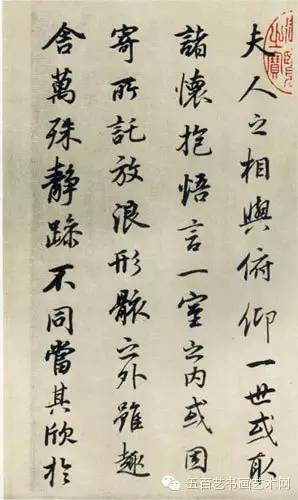 夫人之相與俯仰一世或取
諸懷抱悟言一室之内或因
寄所託放浪形骸之外雖趣
舍萬殊静躁不同當其欣於
五百艺书画艺术网